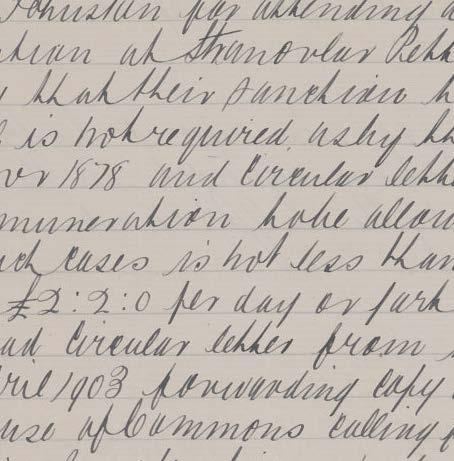 Johnston for attending a
ation at Stranorlar Petty
y that their sanction h
is not required, as by th
or 1878 and Circular lett
muneration to be allow
uch cases is not less than
£2:2:0 per day or part
ad Circular letter from
ril 1903 forwarding copy
use of Commons calling f